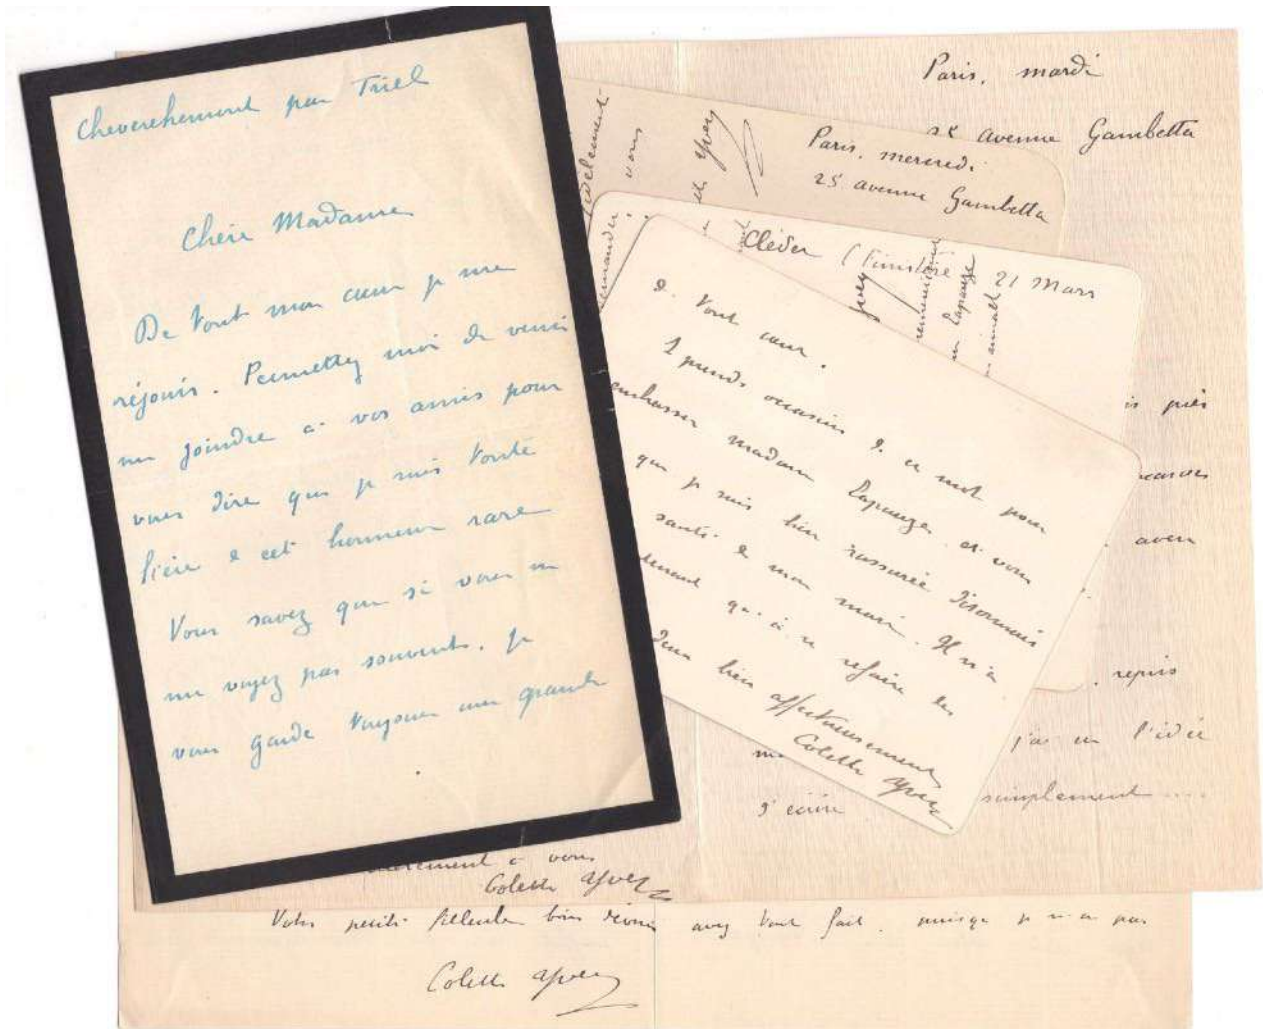 Cheverchemont par Triel
Chère Madame
De tout mon cœur je me
réjouis. Permettez moi de venir
me joindre à vos amis pour
vous dire que je suis toute
fière de cet honneur rare
Vous savez que si vous ne
me voyez pas souvent, je
vous garde toujours une grande
Paris, mardi
25 avenue Gambetta
Paris, mercredi
25 avenue Gambetta
fidèlement
vous
Yver
Cléder (Finistère 21 Mars
Yver
Lapauze
de tout cœur.
Je prends occasion de ce mot pour
embrasser madame Lapauze et vous
que je suis bien rassurée désormais
santé de mon mari. Il n'a
qu'à se refaire les
bien affectueusement
Colette Yver
près
avec
repris
j'ai eu l'idée
d'écrire simplement ....
à vous
Colette Yver
Votre petite filleule bien
avez tout fait, puisque je n'ai pas
Colette Yver